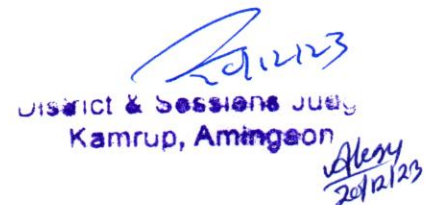 20/12/23
District & Sessions Judge
Kamrup, Amingaon
20/12/23